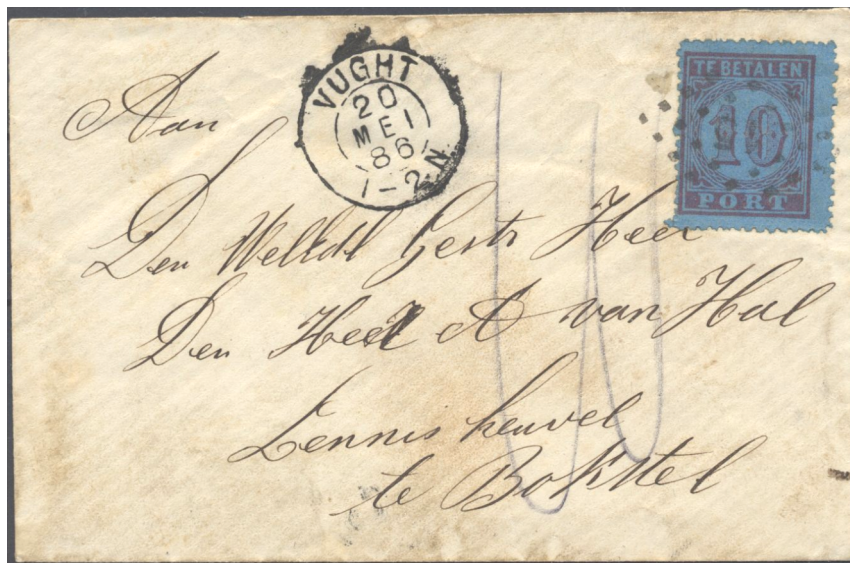 VUGHT
20
MEI
86
1-2 N
TE BETALEN
10
PORT
Aan
Den WelEdl Gestr Heer
Den Heer A van Hal
Lennisheuvel
te Bokstel